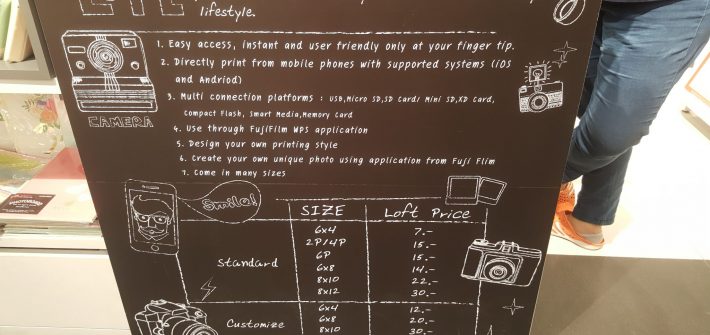 lifestyle.
1. Easy access, instant and user friendly only at your finger tip.
2. Directly print from mobile phones with supported systems (iOS
and Andriod)
3. Multi connection platforms : USB,Micro SD,SD Card/ Mini SD,XD Card,
Compact Flash, Smart Media,Memory Card
4. Use through FujiFilm WPS application
5. Design your own printing style
6. Create your own unique photo using application from Fuji Flim
7. Come in many sizes
CAMERA
Smile!
SIZE Loft Price
Standard
6x4 7.-
2P/4P 15.-
6P 15.-
6x8 14.-
8x10 22.-
8x12 30.-
Customize
6x4 12.-
6x8 20.-
8x10 30.-